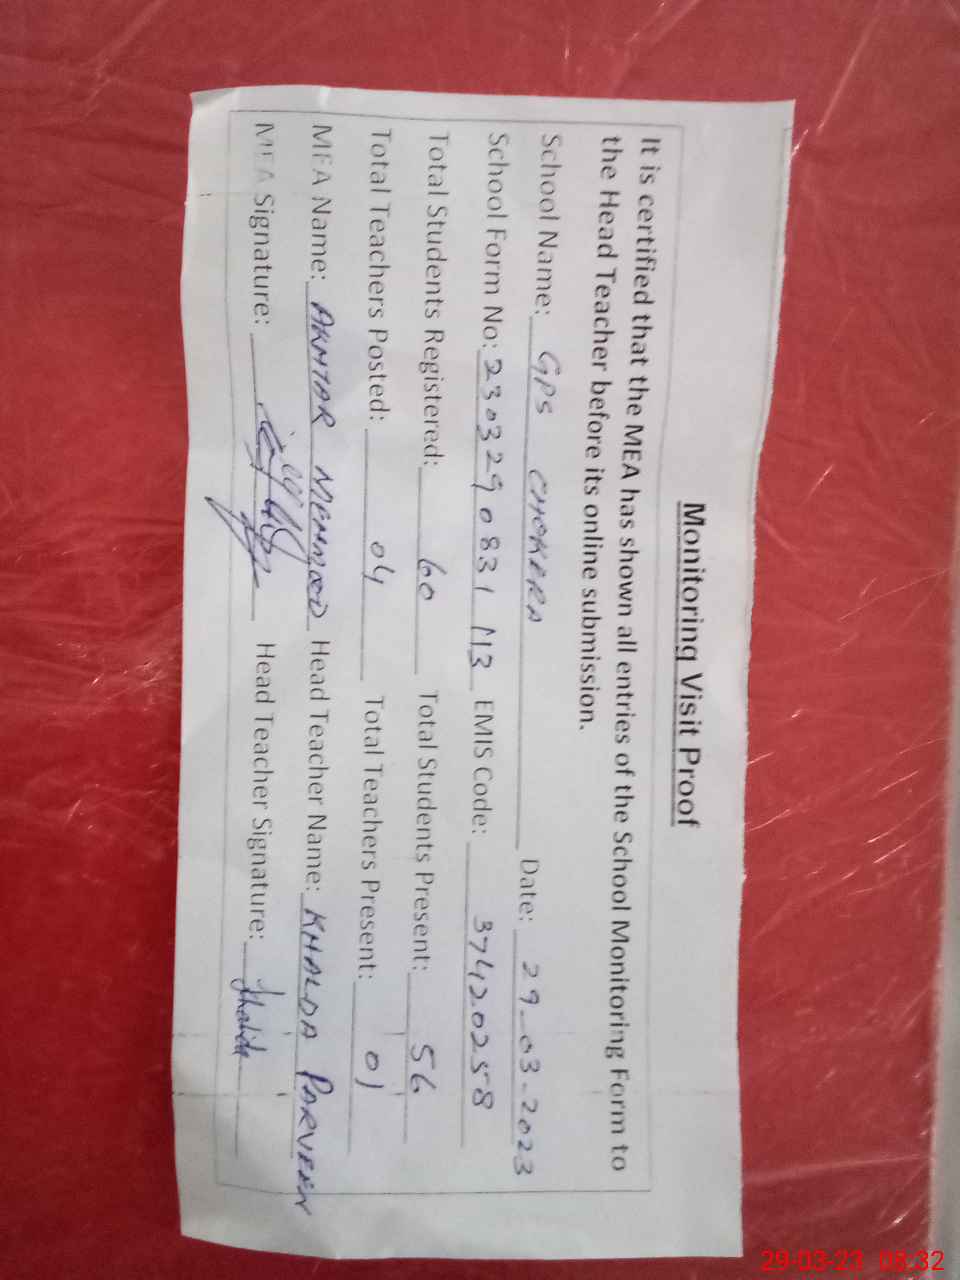 Monitoring Visit Proof
It is certified that the MEA has shown all entries of the School Monitoring Form to
the Head Teacher before its online submission.
School Name: GPS CHOKERA Date: 29-03-2023
School Form No: 230329083113 EMIS Code: 37420258
Total Students Registered: 60 Total Students Present: 56
Total Teachers Posted: 04 Total Teachers Present: 01
MEA Name: AKHTAR MEHMOOD Head Teacher Name: KHALDA PARVEEN
MEA Signature: Head Teacher Signature: Khalida
29-03-23 08:32